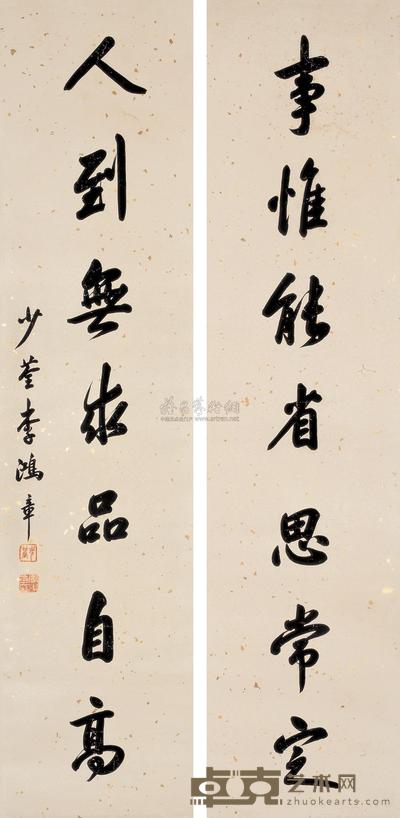 事惟能省思常定
人到無求品自高
少荃李鴻章
卓克艺术网
zhuokearts.com